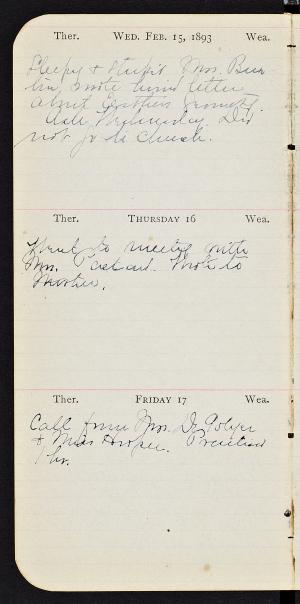 Ther. WED. FEB. 15, 1893 Wea.
Sleepy & stupid. Mrs. Bur
wrote letter
about
Ash Wednesday. Did
not go to church.
Ther. THURSDAY 16 Wea.
Went to meeting with
Mrs. Wrote to
Mother.
Ther. FRIDAY 17 Wea.
Call from Mrs. De Golyer
& Miss Hooper. Practised
1 hr.